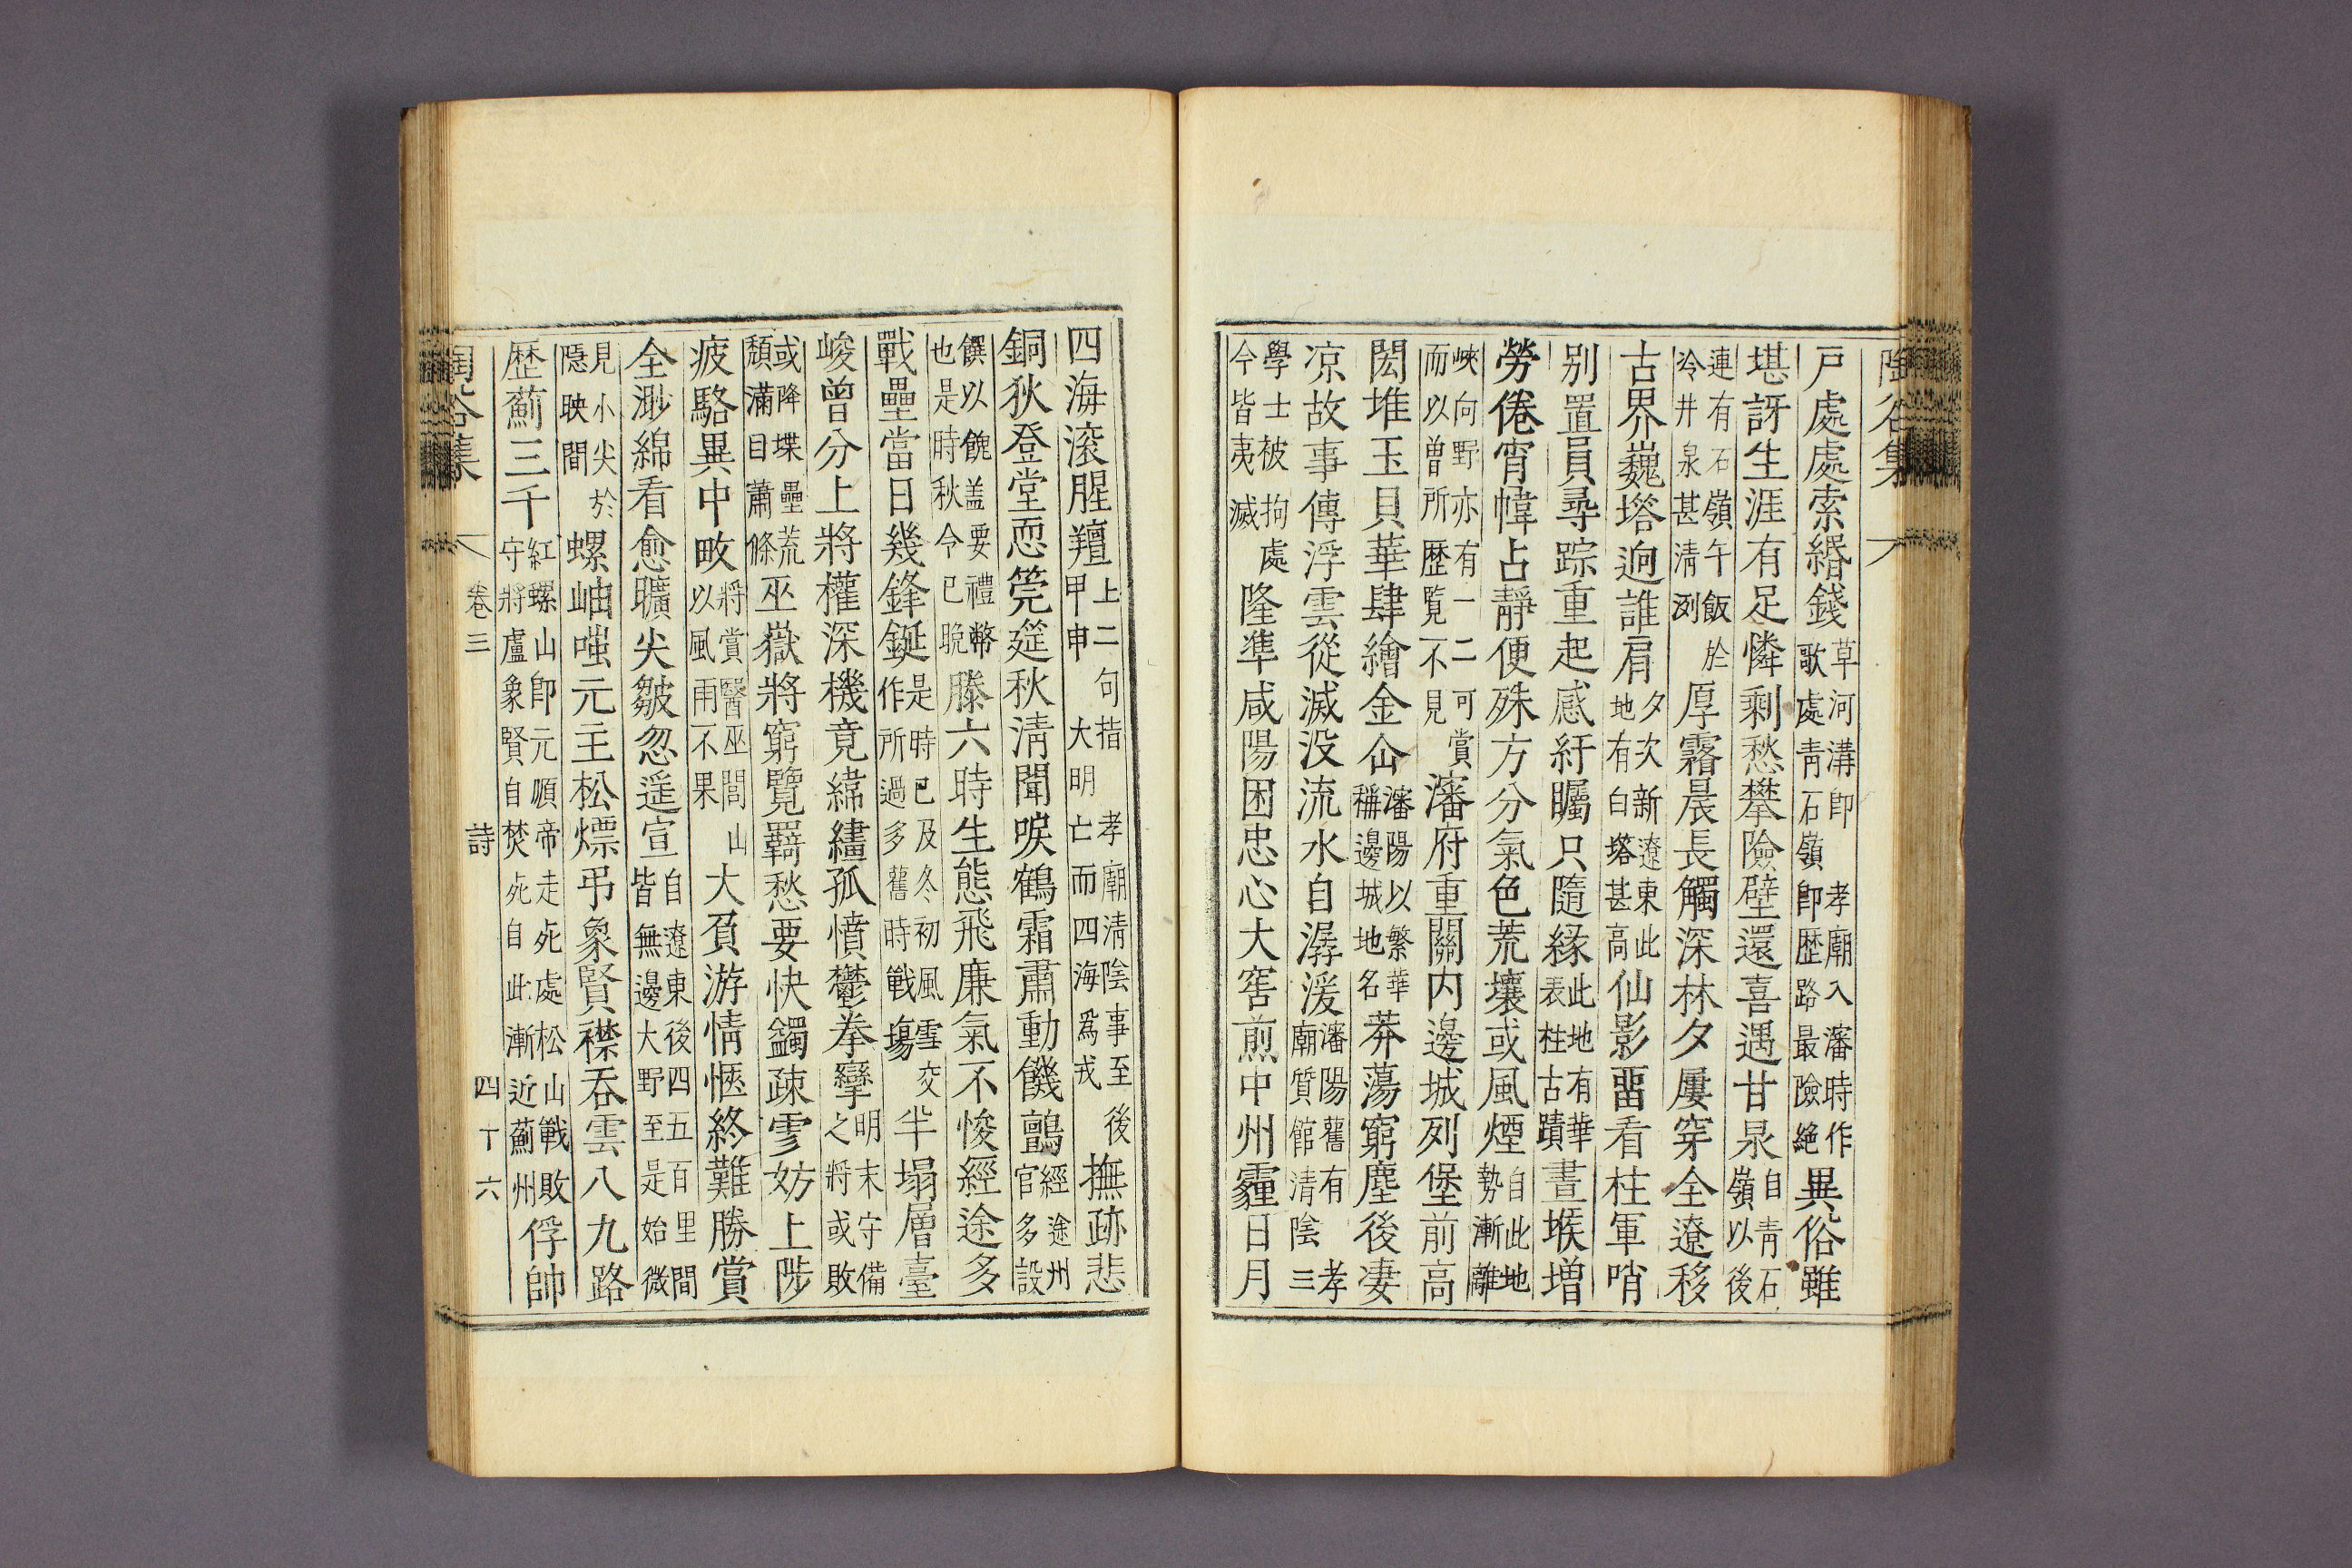 戶處處索緡錢草河溝卽歌處靑石嶺孝廟入瀋時作卽歷路最險絶異俗雖
堪訝生涯有足憐剩愁攀險壁還喜遇甘泉自靑石嶺以後
連有石嶺午飯於冷井泉甚淸冽厚霧晨長觸深林夕屢穿全遼移
古界巍塔逈誰肩夕次新遼東此地有白塔甚高仙影留看柱軍哨
別置員尋踪重起感紆矚只隨緣此地有華表柱古蹟晝堠增
勞倦宵幃占靜便殊方分氣色荒壤或風煙自此地勢漸離
峽向野亦有一二可賞而以曾所歷覽不見瀋府重關內邊城列堡前高
閎堆玉貝華肆繪金仚瀋陽以繁華稱邊城地名莽蕩窮塵後凄
凉故事傳浮雲從滅没流水自潺湲瀋陽舊有孝廟質館淸陰三
學士被拘處今皆夷滅隆準咸陽困忠心大窖煎中州霾日月
四海滾腥羶上二句指孝廟淸陰事至後甲申大明亡而四海爲戎撫跡悲
銅狄登堂恧筦筵秋淸聞唳鶴霜肅動饑鸇經途州官多設
饌以餽盖要禮幣也是時秋令已晩滕六時生態飛廉氣不悛經途多
戰壘當日幾鋒鋋是時已及冬初風雪交作所過多舊時戰場半塌層臺
峻曾分上將權深機竟綈繣孤憤鬱拳攣明末守備之將或敗
或降堞壘荒頹滿目蕭條巫嶽將窮覽羇愁要快蠲疎雩妨上陟
疲駱異中畋將賞醫巫閭山以風雨不果大負游情愜終難勝賞
全渺綿看愈曠尖皺忽遥宣自遼東後四五百里間皆無邊大野至是始微
見小尖於隱映間螺岫嗤元主松熛弔象賢襟呑雲八九路
歷薊三千紅螺山卽元順帝走死處松山戰敗守將盧象賢自焚死自此漸近薊州俘帥
卷三 詩 四十六